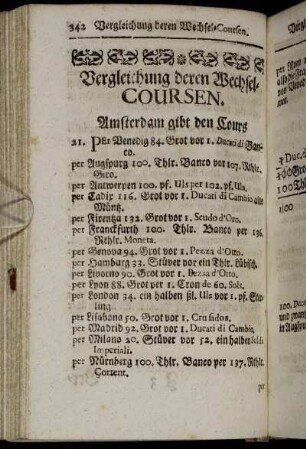 342 Vergleichung deren Wechsel-Coursen.
Vergleichung deren Wechsel-
COURSEN.
Amsterdam gibt den Cours
21. PEr Venedig 84. Grot vor 1. Ducati di Ban-
co.
per Augspurg 100. Thlr. Banco vor 107. Rthlr.
Giro.
per Antwerpen 100. pf. Uls per 102. pf. Uls.
per Cadix 116. Grot vor 1. Ducati di Cambio alte
Müntz.
per Firentza 132. Grot vor 1. Scudo d'Oro.
per Franckfurth 100. Thlr. Banco per 136.
Rthlr. Moneta.
per Genova 94. Grot vor 1. Pezza d'Orto.
per Hamburg 33. Stüver vor ein Thlr. Lübisch.
per Livorno 90. Grot vor 1. Pezza d'Otto.
per Lyon 88. Grot per 1. Cron de 60. Sols.
per London 34. ein halben ßl. Uls vor 1. pf. Star-
ling.
per Lisabona 50. Grot vor 1. Crusados.
per Madrid 92. Grot vor 1. Ducati di Cambio.
per Milano 20. Stüver vor 52. ein halber Soldi
Imperiali.
per Nürnberg 100. Thlr. Banco per 137. Rthlr.
Corrent.
per